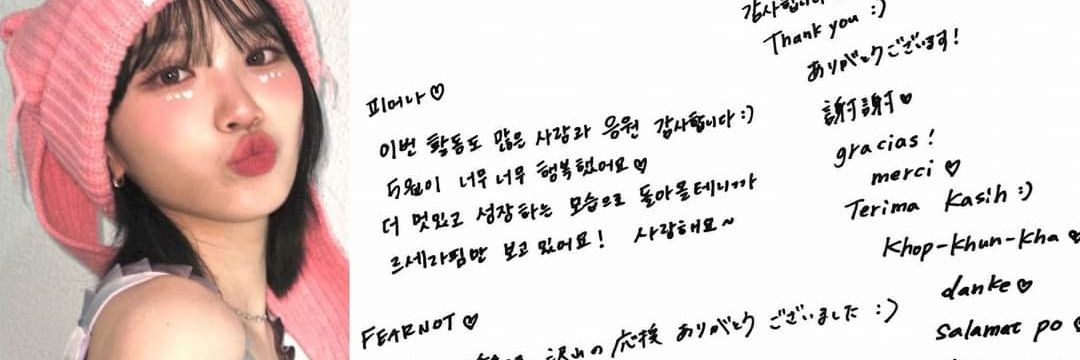 피어나♡
이번 활동도 많은 사랑과 응원 감사합니다:)
5월이 너무너무 행복했어요♡
더 멋있고 성장하는 모습으로 돌아올테니까
르세라핌만 보고있어요! 사랑해요~
FEARNOT♡
沢山の応援 ありがとうございました :)
감사합니다
Thank you :)
ありがとうございます!
謝謝♥
gracias!
merci♡
Terima Kasih :)
Khop-khun-kha♥
danke♡
Salamat po